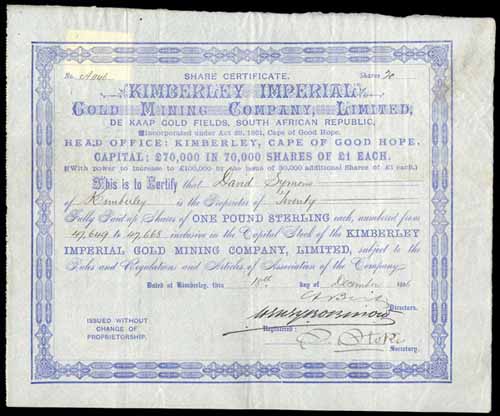 No.
SHARE CERTIFICATE.
Shares 20
KIMBERLEY IMPERIAL
GOLD MINING COMPANY, LIMITED,
DE KAAP GOLD FIELDS, SOUTH AFRICAN REPUBLIC,
Incorporated under Act 23, 1861, Cape of Good Hope.
HEAD OFFICE: KIMBERLEY, CAPE OF GOOD HOPE.
CAPITAL: £70,000 IN 70,000 SHARES OF £1 EACH.
(With power to increase to £100,000 by the issue of 30,000 additional Shares of £1 each.)
This is to Certify that David Symons
of Kimberley is the Proprietor of Twenty
Fully Paid up Shares of ONE POUND STERLING each, numbered from
47,649 to 47,668 inclusive in the Capital Stock of the KIMBERLEY
IMPERIAL GOLD MINING COMPANY, LIMITED, subject to the
Rules and Regulations and Articles of Association of the Company.
Dated at Kimberley, this day of December
Directors.
ISSUED WITHOUT
CHANGE OF
PROPRIETORSHIP.
Registered
Secretary.